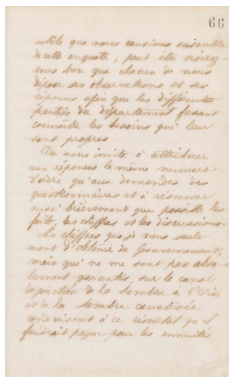 66
utile que nous causions ensemble
de cette enquête, peut-être croirez-
vous bon que chacun de nous
dépose ses observations et ses
réponses afin que les différentes
parties du département fassent
connaître les besoins qui leur
sont propres
On nous invite à attribuer
aux réponses le même numéro
d'ordre qu'aux demandes des
questionnaires et à résumer
aussi brièvement que possible les
faits, les chiffres et les discussions.
Les chiffres que je viens seule-
ment d'obtenir du Gouvernement,
mais qui ne me sont pas abso-
lument garantis, sur le canal
de jonction de la Sambre à l'Oise
et à la Sambre canalisée
conduisent à ce résultat qu'il
faudrait payer pour les annuités